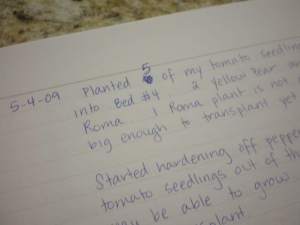 5-4-09 Planted 5 of my tomato seedlings
into Bed #4. 2 yellow pear and
Roma. 1 Roma plant is not
big enough to transplant yet
Started hardening off pepper
tomato seedlings out of the
may be able to grow
transplant